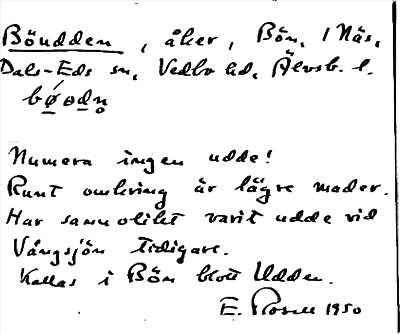 Böudden, åker, Bön, 1 Näs,
Dals-Eds sn, Vedbo hd, Älvsb. l.
Numera ingen udde!
Runt omkring är lägre mader.
Har sannolikt varit udde vid
Vångsjön tidigare.
Kallas i Bön blott Udden.
E. Rosell 1950